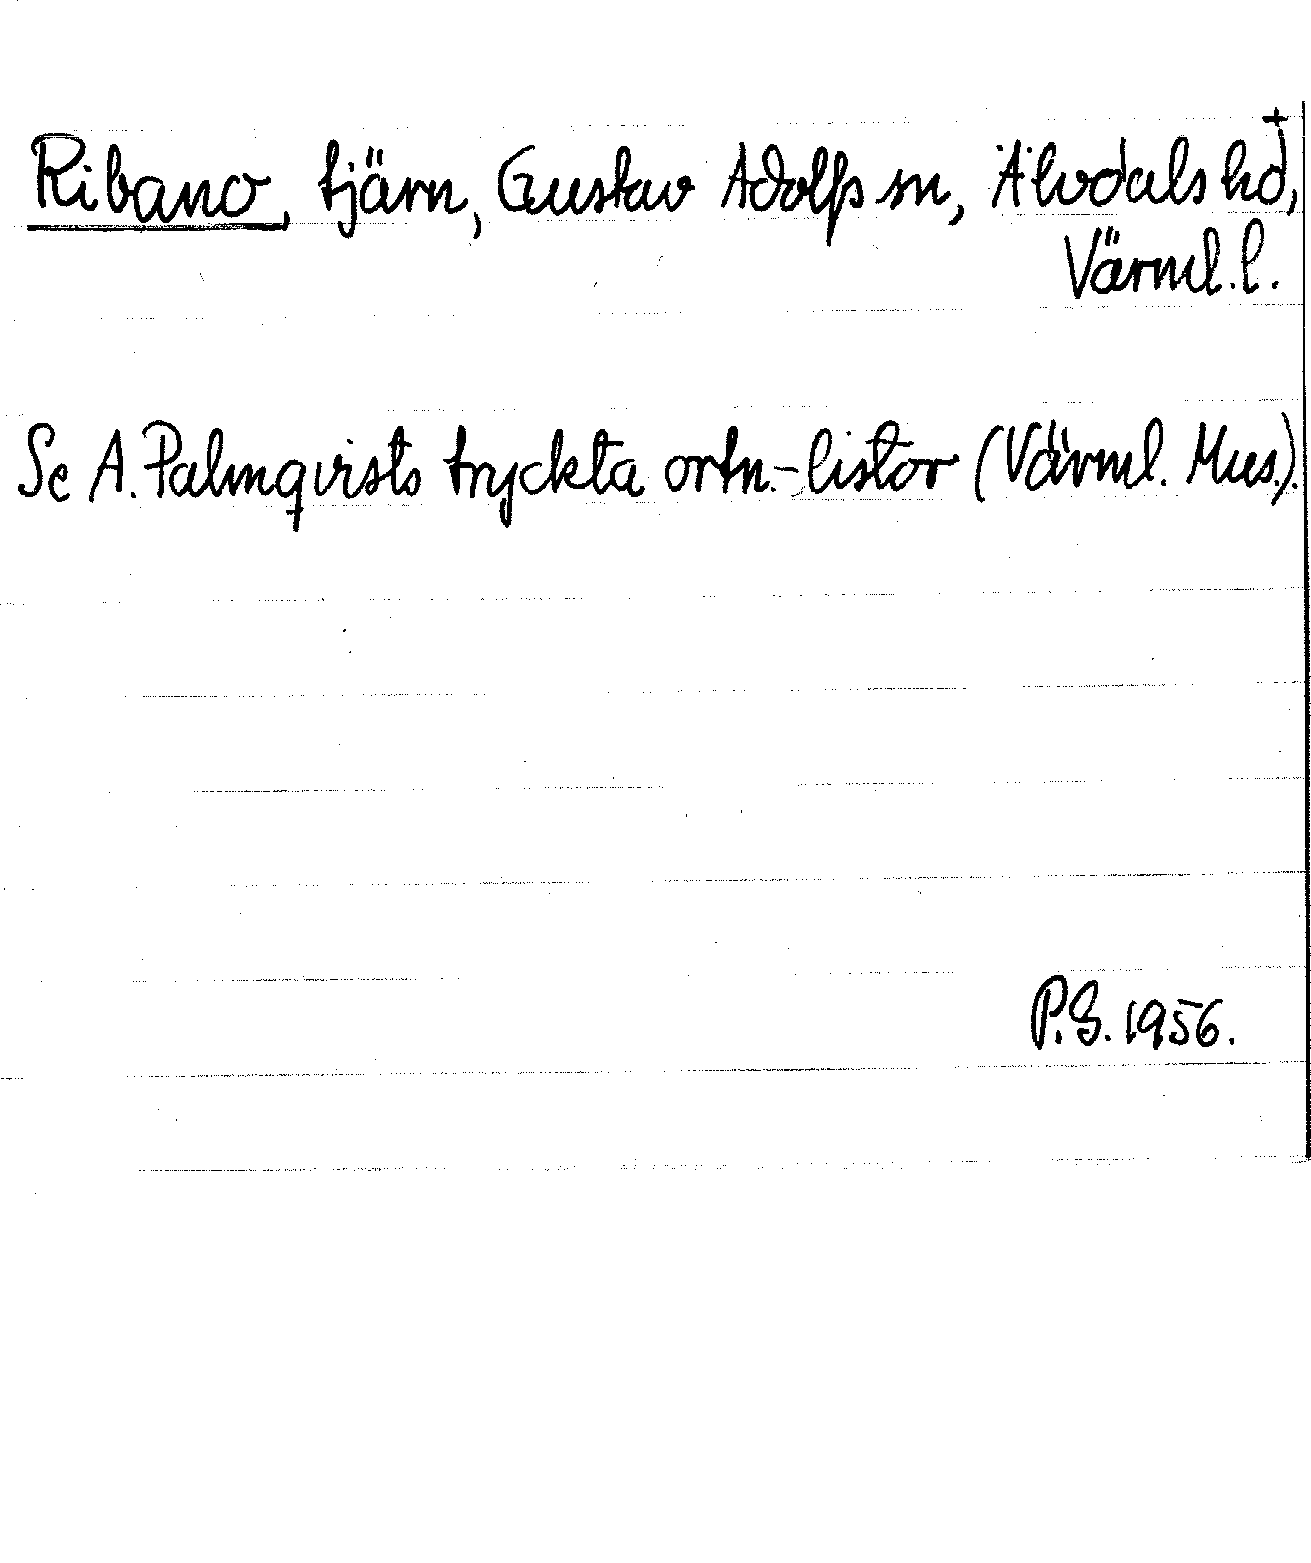 Ribano, tjärn, Gustav Adolfs sn, Älvdals hd,
Värml. l.
Se A. Palmqvists tryckta ortn.-listor (Värml. Mus.).
P.G. 1956.